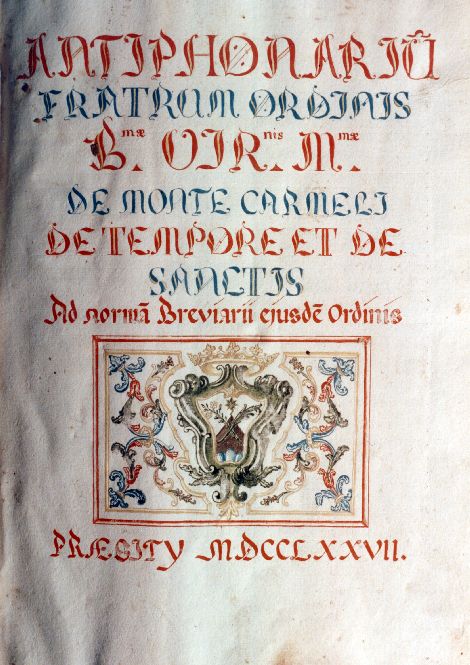 ANTIPHONARIŪ
FRATRUM ORDINIS
B.mæ VIR.nis M.mæ
DE MONTE CARMELI
DE TEMPORE ET DE
SANCTIS
Ad normā Breviarii ejusdē Ordinis
MDCCLXXVII.